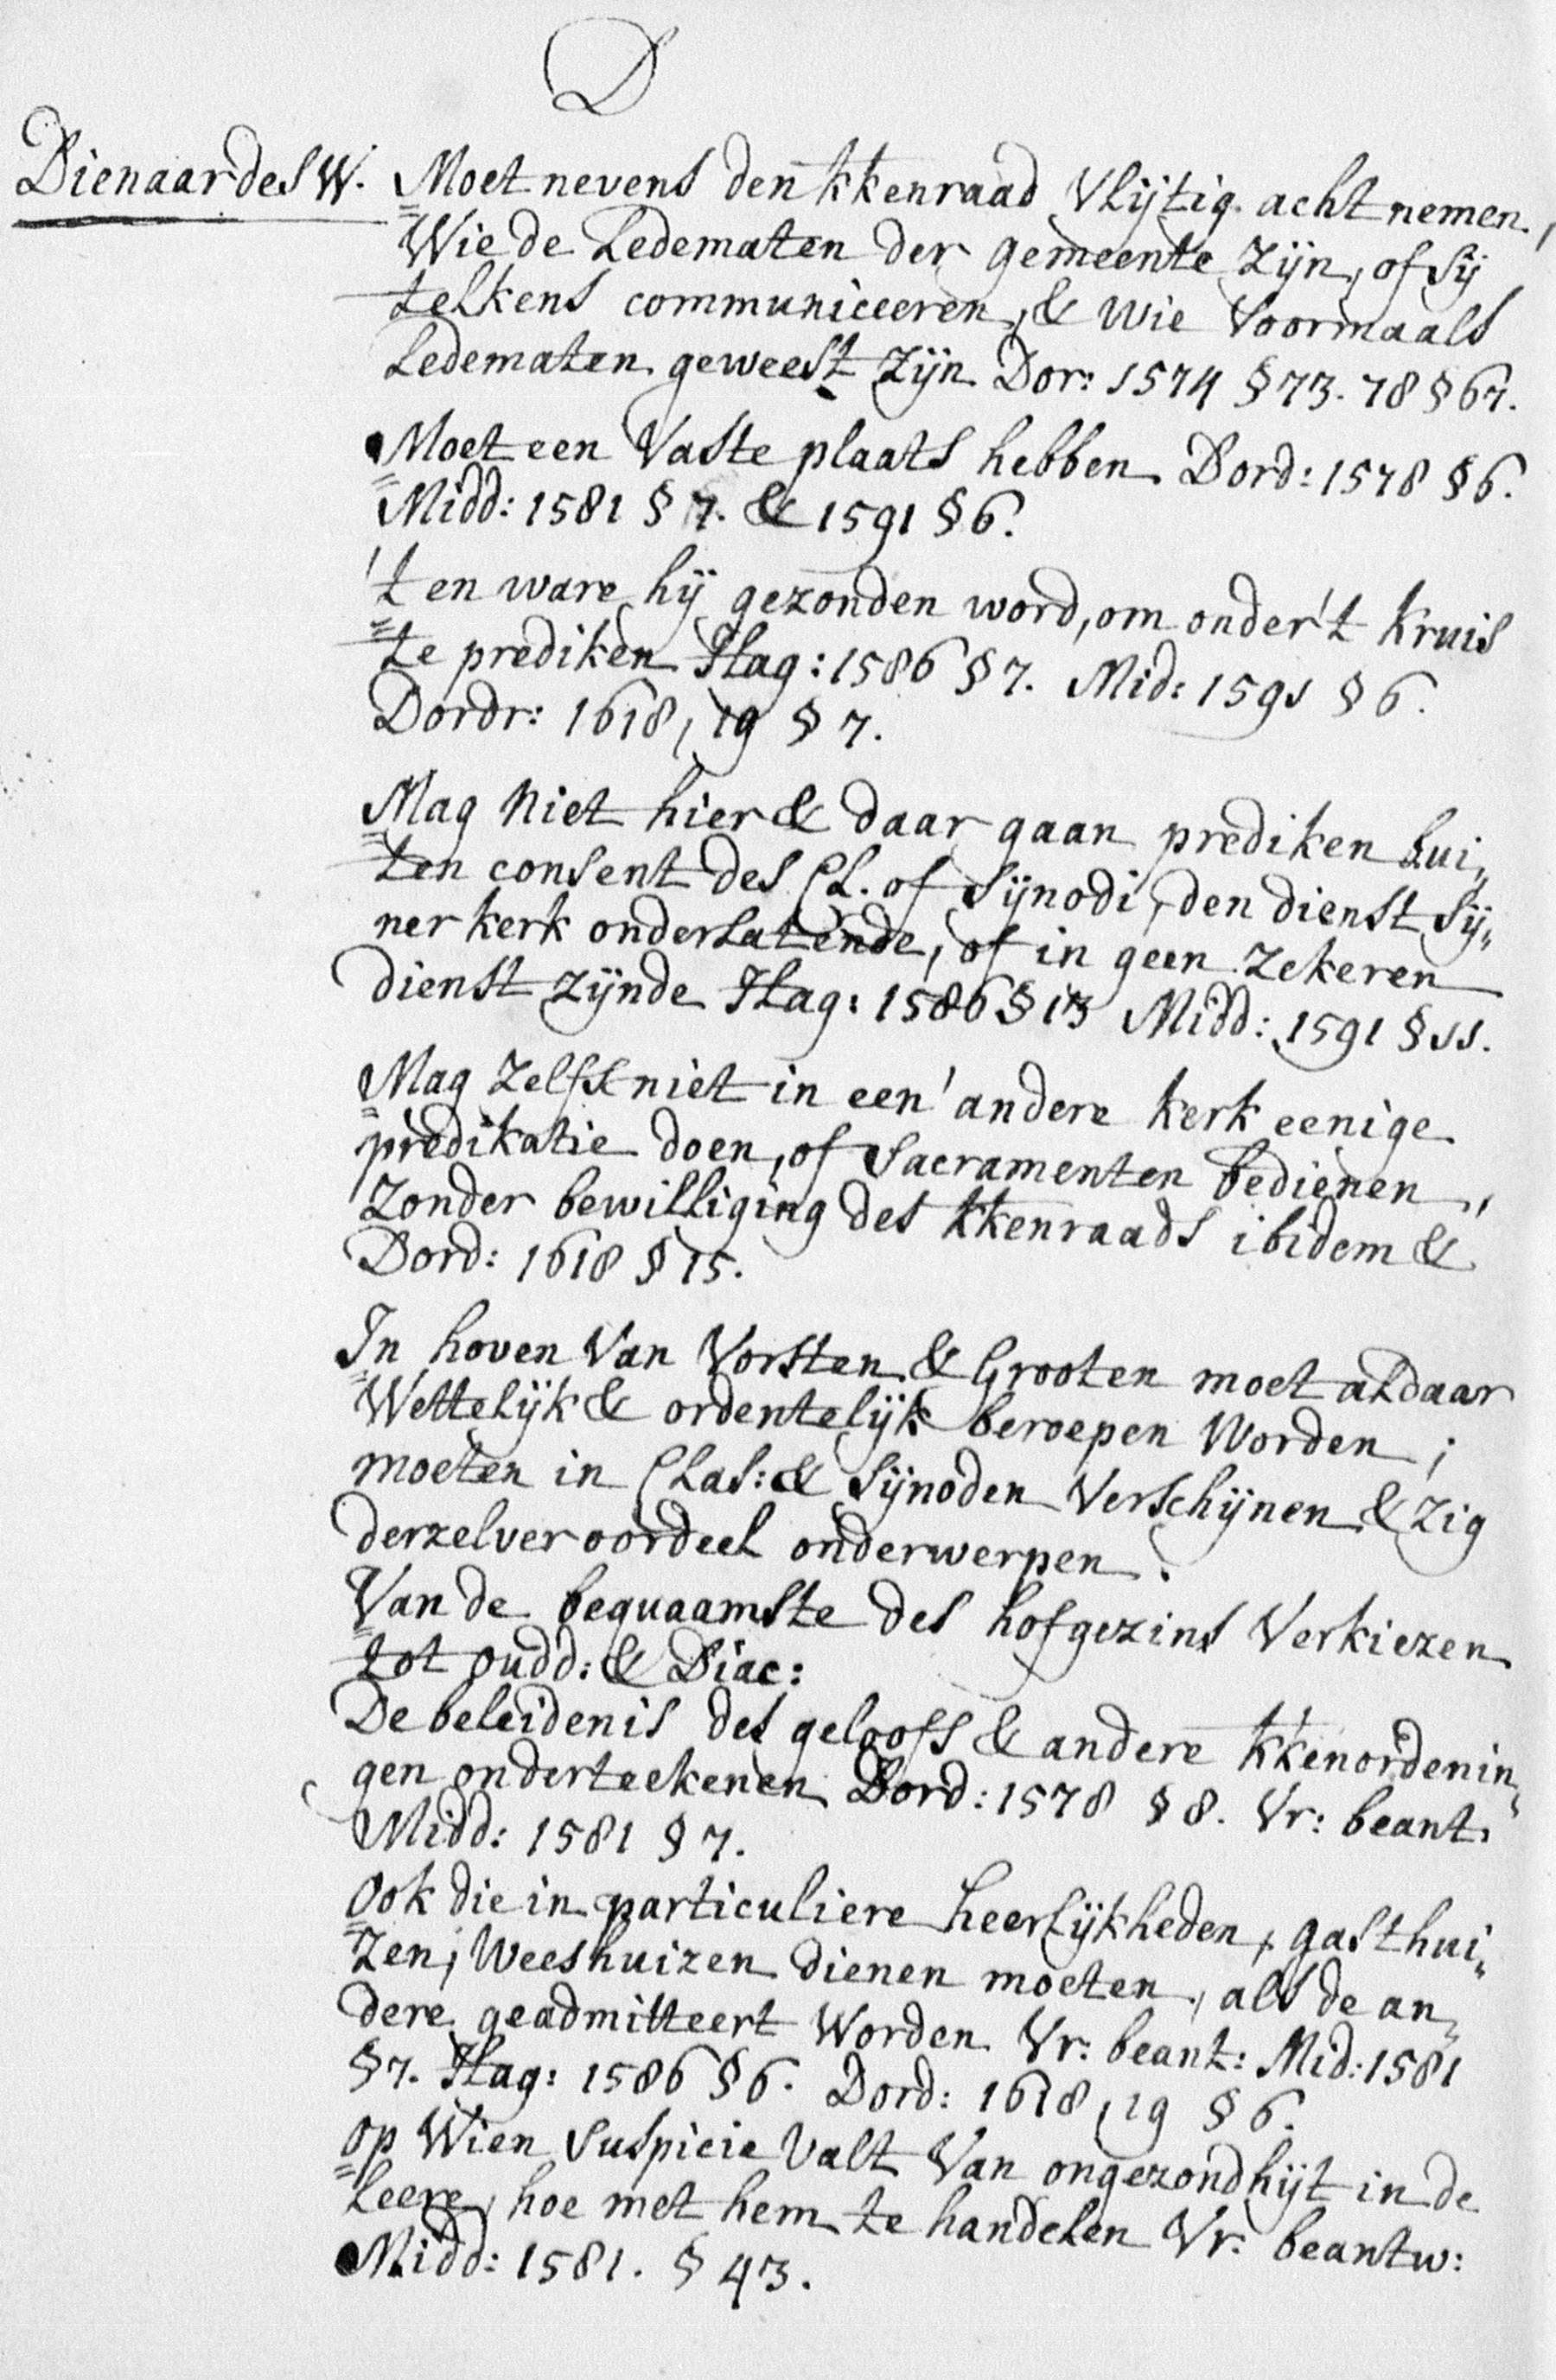 D
Dienaar des W. Moet nevens den kkenraad vlijtig acht nemen,
Wie de Ledematen der gemeente zijn, of sij
telkens communiceeren, & wie voormaals
Ledematen geweest zijn Dor: 1574 § 73. 78 § 67.
Moet een Vaste plaats hebben Dord: 1578 § 6.
Midd: 1581 § 7. & 1591 § 6.
't en ware hij gezonden word, om onder 't Kruis
te prediken Hag: 1586 § 7. Mid: 1591 § 6.
Dordr: 1618, 19 § 7.
Mag Niet hier & daar gaan prediken bui„
ten consent des Cl. of Sijnodi, den dienst sij„
ner kerk onderlatende, of in geen zekeren
dienst zijnde Hag: 1586 § 13 Midd: 1591 § 11.
Mag zelfs niet in een' andere kerk eenige
predikatie doen, of Sacramenten bedienen,
zonder bewilliging des kkenraads ibidem &
Dord: 1618 § 15.
In hoven Van Vorsten & Grooten moet aldaar
Wettelijk & ordentelijk beroepen Worden;
moeten in Clas: & Sijnoden Verschijnen & zig
derzelver oordeel onderwerpen.
Van de bequaamste des hofgezins Verkiezen
tot oudd: & Diac:
De beleidenis des geloofs & andere kkenordenin„
gen onderteekenen Dord: 1578 § 8. Vr: beant.
Midd: 1581 § 7.
Ook die in particuliere heerlijkheden, gasthui„
zen, Weeshuizen dienen moeten, als de an„
dere geadmitteert Worden Vr: beant: Mid: 1581
§ 7. Hag: 1586 § 6. Dord: 1618, 19 § 6.
Op Wien Suspicie Valt Van ongezondhijt in de
Leere, hoe met hem te handelen Vr: beantw:
Midd: 1581. § 43.